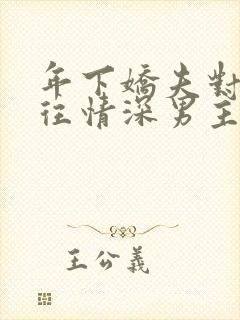 年下嬌夫對
往情深男主
王公義